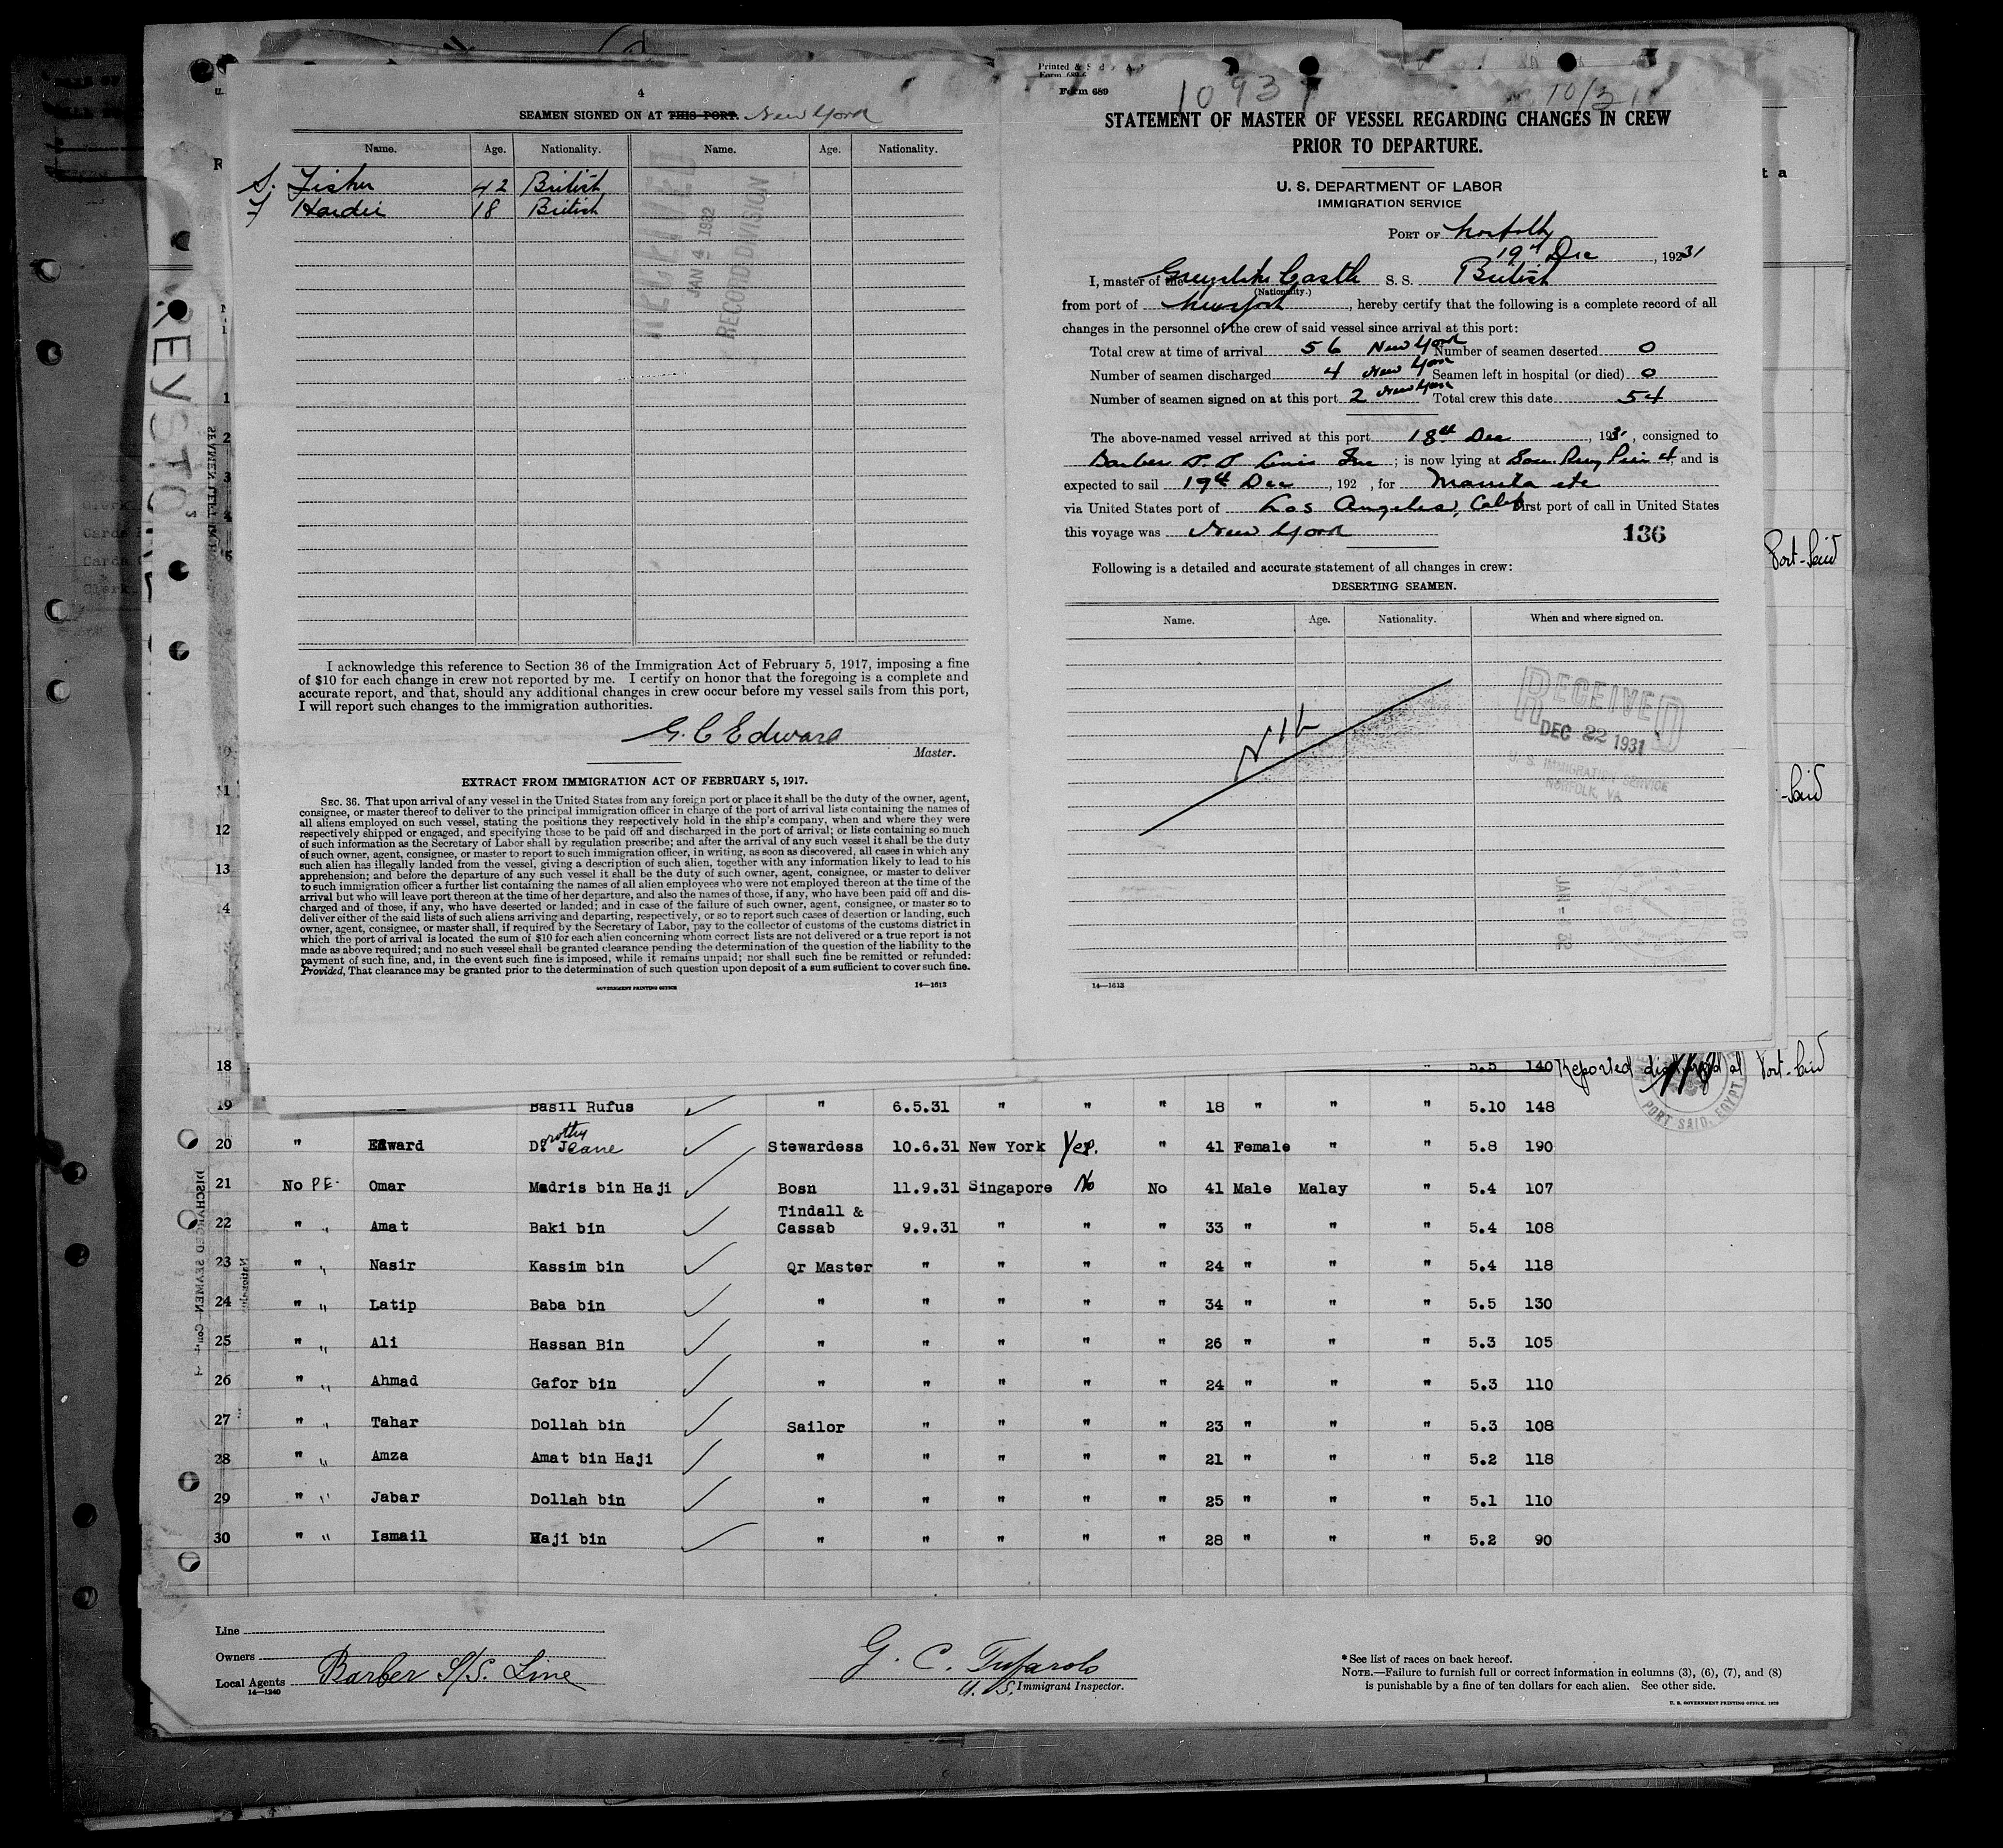 4
SEAMEN SIGNED ON AT THIS PORT. New York
Name. Age. Nationality. Name. Age. Nationality.
S. Fisher 42 British
Hardie 18 British
RECEIVED
JAN 4 1932
RECORD DIVISION
I acknowledge this reference to Section 36 of the Immigration Act of February 5, 1917, imposing a fine
of $10 for each change in crew not reported by me. I certify on honor that the foregoing is a complete and
accurate report, and that, should any additional changes in crew occur before my vessel sails from this port,
I will report such changes to the immigration authorities.
G. C Edward
Master.
EXTRACT FROM IMMIGRATION ACT OF FEBRUARY 5, 1917.
SEC. 36. That upon arrival of any vessel in the United States from any foreign port or place it shall be the duty of the owner, agent,
consignee, or master thereof to deliver to the principal immigration officer in charge of the port of arrival lists containing the names of
all aliens employed on such vessel, stating the positions they respectively hold in the ship's company, when and where they were
respectively shipped or engaged, and specifying those to be paid off and discharged in the port of arrival; or lists containing so much
of such information as the Secretary of Labor shall by regulation prescribe; and after the arrival of any such vessel it shall be the duty
of such owner, agent, consignee, or master to report to such immigration officer, in writing, as soon as discovered, all cases in which any
such alien has illegally landed from the vessel, giving a description of such alien, together with any information likely to lead to his
apprehension; and before the departure of any such vessel it shall be the duty of such owner, agent, consignee, or master to deliver
to such immigration officer a further list containing the names of all alien employees who were not employed thereon at the time of the
arrival but who will leave port thereon at the time of her departure, and also the names of those, if any, who have been paid off and dis-
charged and of those, if any, who have deserted or landed; and in case of the failure of such owner, agent, consignee, or master so to
deliver either of the said lists of such aliens arriving and departing, respectively, or so to report such cases of desertion or landing, such
owner, agent, consignee, or master shall, if required by the Secretary of Labor, pay to the collector of customs of the customs district in
which the port of arrival is located the sum of $10 for each alien concerning whom correct lists are not delivered or a true report is not
made as above required; and no such vessel shall be granted clearance pending the determination of the question of the liability to the
payment of such fine, and, in the event such fine is imposed, while it remains unpaid; nor shall such fine be remitted or refunded:
Provided, That clearance may be granted prior to the determination of such question upon deposit of a sum sufficient to cover such fine.
GOVERNMENT PRINTING OFFICE 14—1613
Form 689
STATEMENT OF MASTER OF VESSEL REGARDING CHANGES IN CREW
PRIOR TO DEPARTURE.
U. S. DEPARTMENT OF LABOR
IMMIGRATION SERVICE
PORT OF Norfolk
19th Dec, 1931
I, master of the Castle S. S. British
(Nationality.)
from port of New York, hereby certify that the following is a complete record of all
changes in the personnel of the crew of said vessel since arrival at this port:
Total crew at time of arrival 56 New York Number of seamen deserted 0
Number of seamen discharged 4 New York Seamen left in hospital (or died) 0
Number of seamen signed on at this port 2 New York Total crew this date 54
The above-named vessel arrived at this port 18th Dec, 1931, consigned to
Barber S. S Lines Inc; is now lying at Pier 4, and is
expected to sail 19th Dec, 192 , for Manila etc
via United States port of Los Angeles, Calif First port of call in United States
this voyage was New York
136
Following is a detailed and accurate statement of all changes in crew:
DESERTING SEAMEN.
Name. Age. Nationality. When and where signed on.
Nil
RECEIVED
DEC 22 1931
U. S. IMMIGRATION SERVICE
NORFOLK, VA.
14—1613
Port-Said
-Said
18 5.5 140 Reported discharged at Port-Said
PORT SAID, EGYPT
19 Basil Rufus " 6.5.31 " " " 18 " " " 5.10 148
20 " Edward Dorothy Jeane Stewardess 10.6.31 New York Yes. " 41 Female " " 5.8 190
21 No P.E. Omar Madris bin Haji Bosn 11.9.31 Singapore No No 41 Male Malay " 5.4 107
22 " " Amat Baki bin Tindall & Cassab 9.9.31 " " " 33 " " " 5.4 108
23 " " Nasir Kassim bin Qr Master " " " " 24 " " " 5.4 118
24 " " Latip Baba bin " " " " " 34 " " " 5.5 130
25 " " Ali Hassan Bin " " " " " 26 " " " 5.3 105
26 " " Ahmad Gafor bin " " " " " 24 " " " 5.3 110
27 " " Tahar Dollah bin Sailor " " " " 23 " " " 5.3 108
28 " " Amza Amat bin Haji " " " " " 21 " " " 5.2 118
29 " " Jabar Dollah bin " " " " " 25 " " " 5.1 110
30 " " Ismail Haji bin " " " " " 28 " " " 5.2 90
Line
Owners
Local Agents Barber S/S. Line
14—1240
G. C.
U. S. Immigrant Inspector.
* See list of races on back hereof.
NOTE.—Failure to furnish full or correct information in columns (3), (6), (7), and (8)
is punishable by a fine of ten dollars for each alien. See other side.